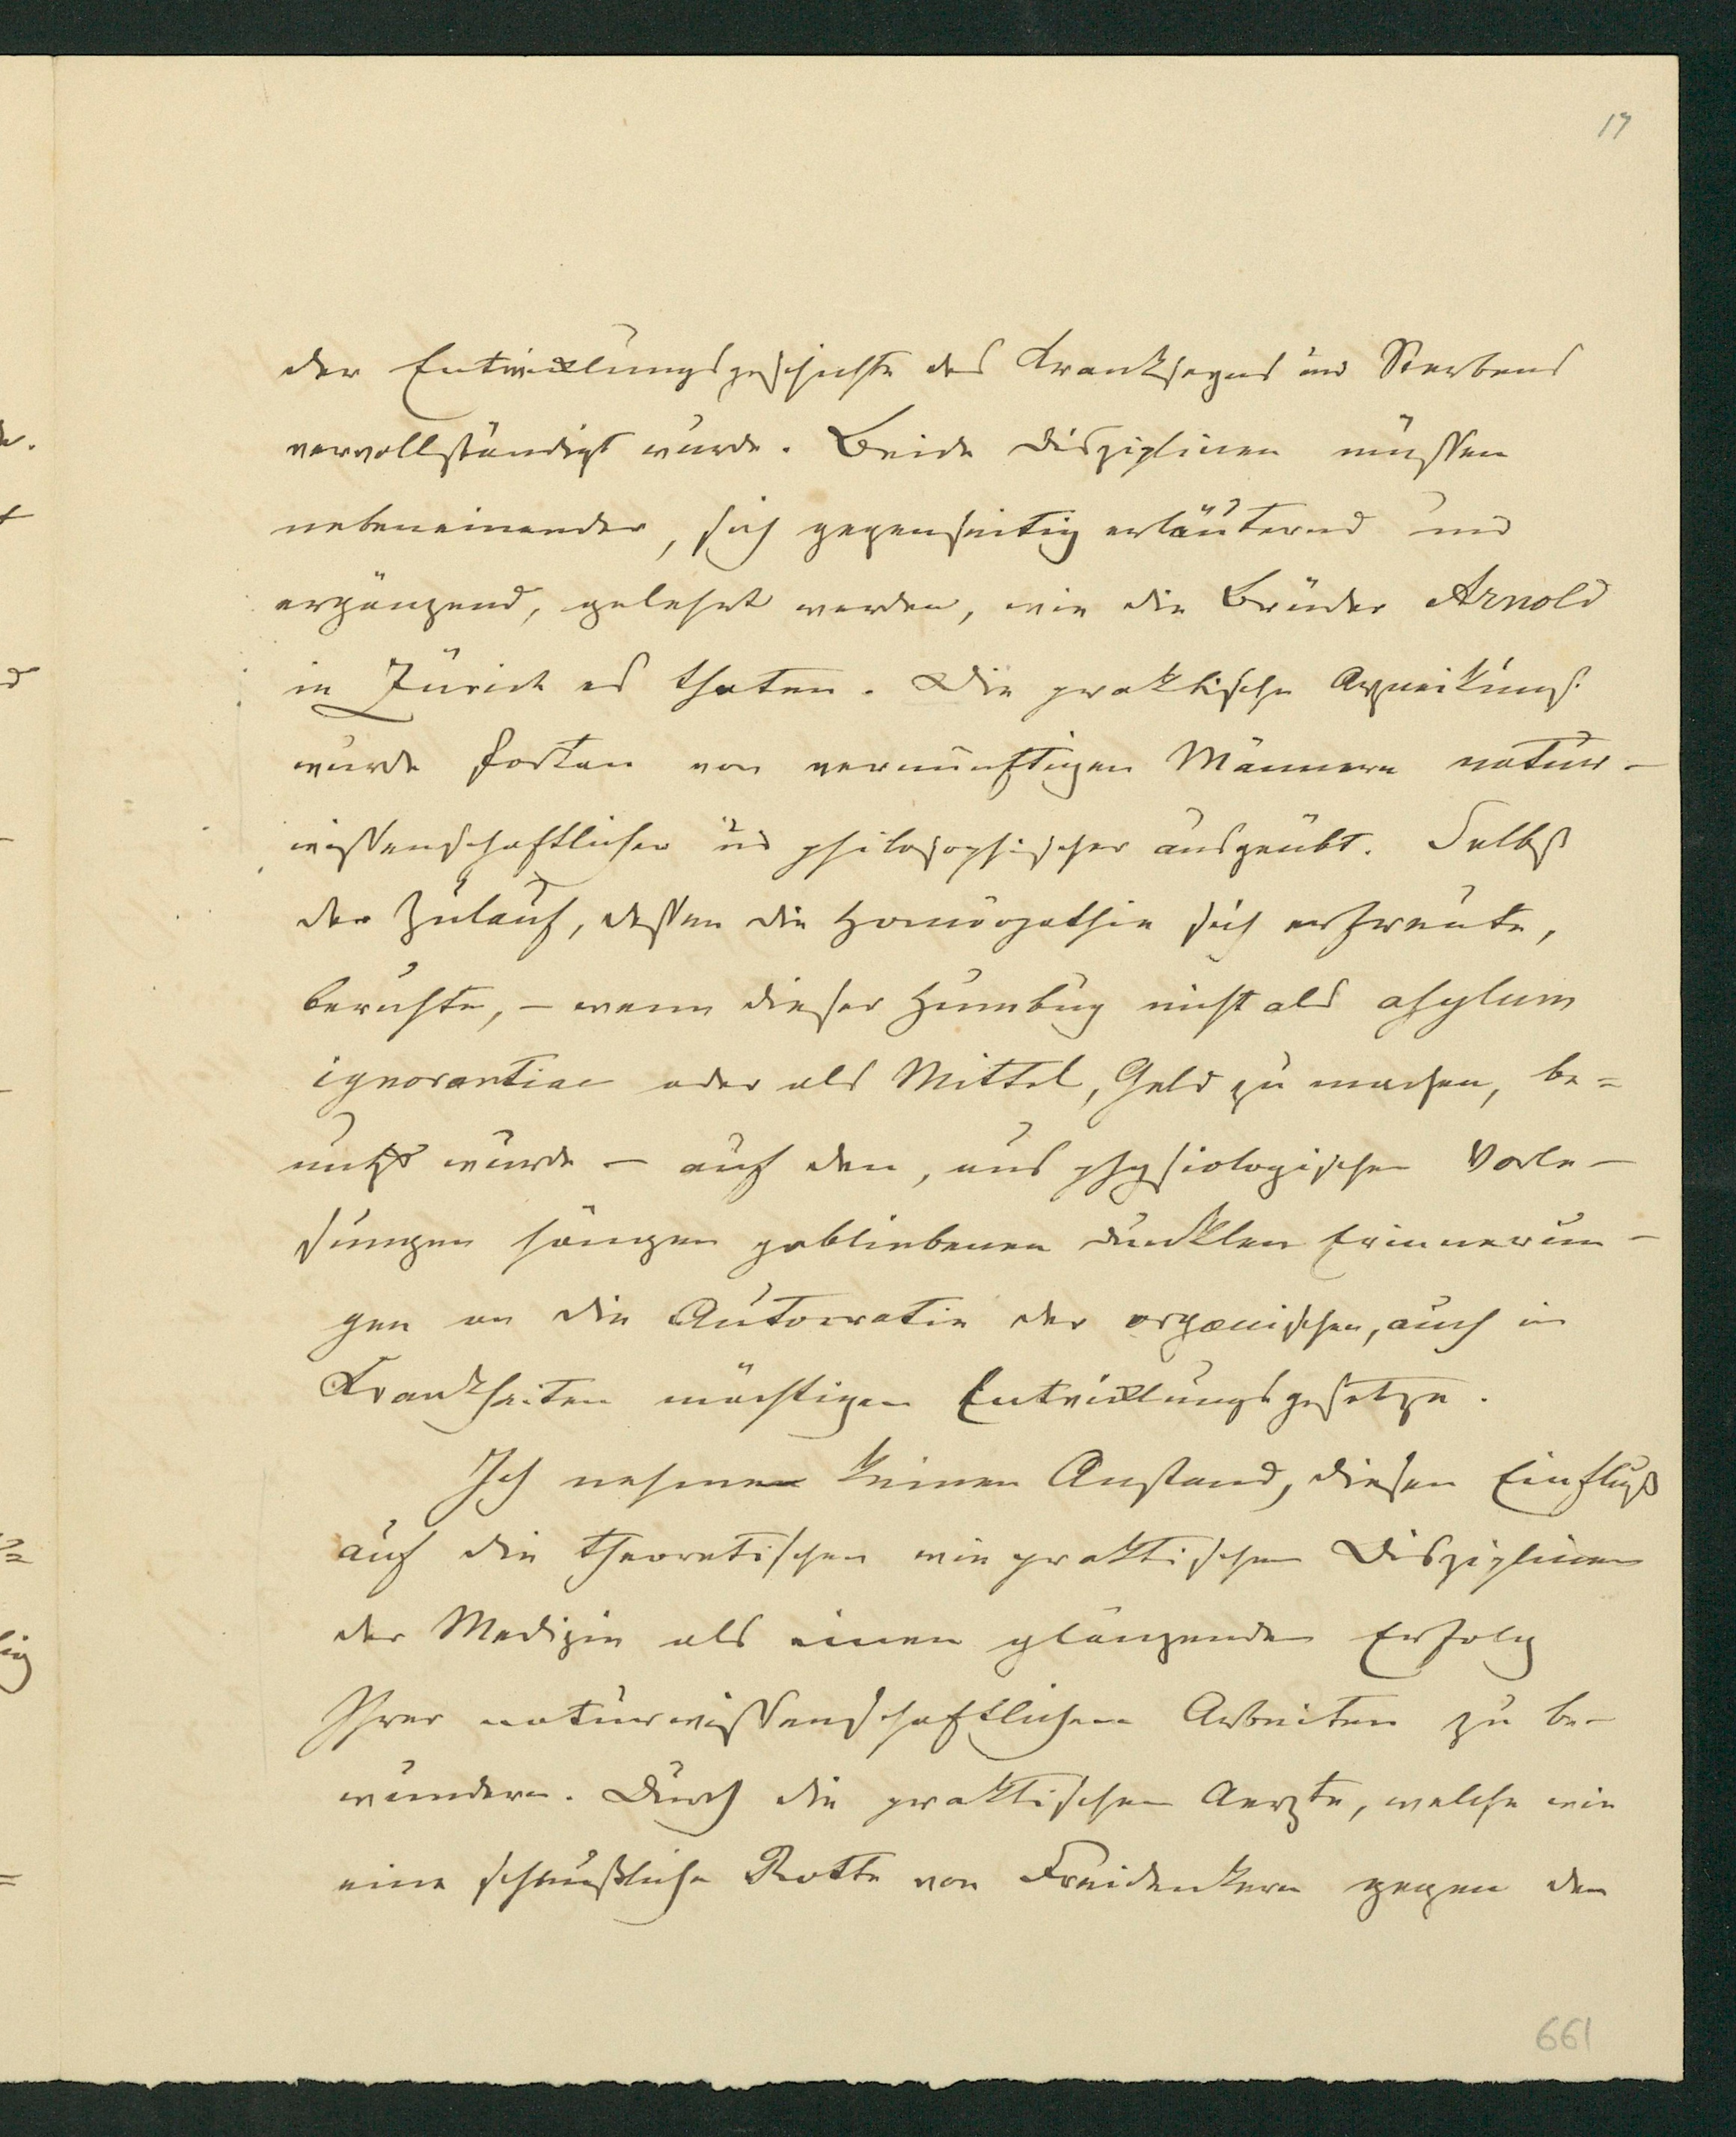 17
der Entwicklungsgeschichte des Krankseyns und Sterbens
vervollständigt wurde. Beide Disziplinen müssen
nebeneinander, sich gegenseitig erläuternd und
ergänzend, gelehrt werden, wie die Brüder Arnold
in Zürich es thaten. Die praktische Arzneikunst
wurde fortan von vernünftigen Männern natur-
wissenschaftlicher und philosophischer ausgeübt. Selbst
der Zulauf, dessen die Homöopathie sich erfreute,
beruhte, – wenn dieser Humbug nicht als asylum
ignorantiae oder als Mittel, Geld zu machen, be=
nutzt wurde – auf den, aus physiologischen Vorle-
sungen hängen gebliebenen dunklen Erinnerun-
gen an die Autocratie der organischen, auch in
Krankheiten mächtigen Entwicklungsgesetze.
Ich nehme keinen Anstand, diesen Einfluß
auf die theoretischen wie praktischen Disziplinen
der Medizin als einen glänzenden Erfolg
Ihrer naturwissenschaftlichen Arbeiten zu be-
wundern. Durch die praktischen Aerzte, welche wie
eine scheußliche Rotte von Freidenkern gegen den
661